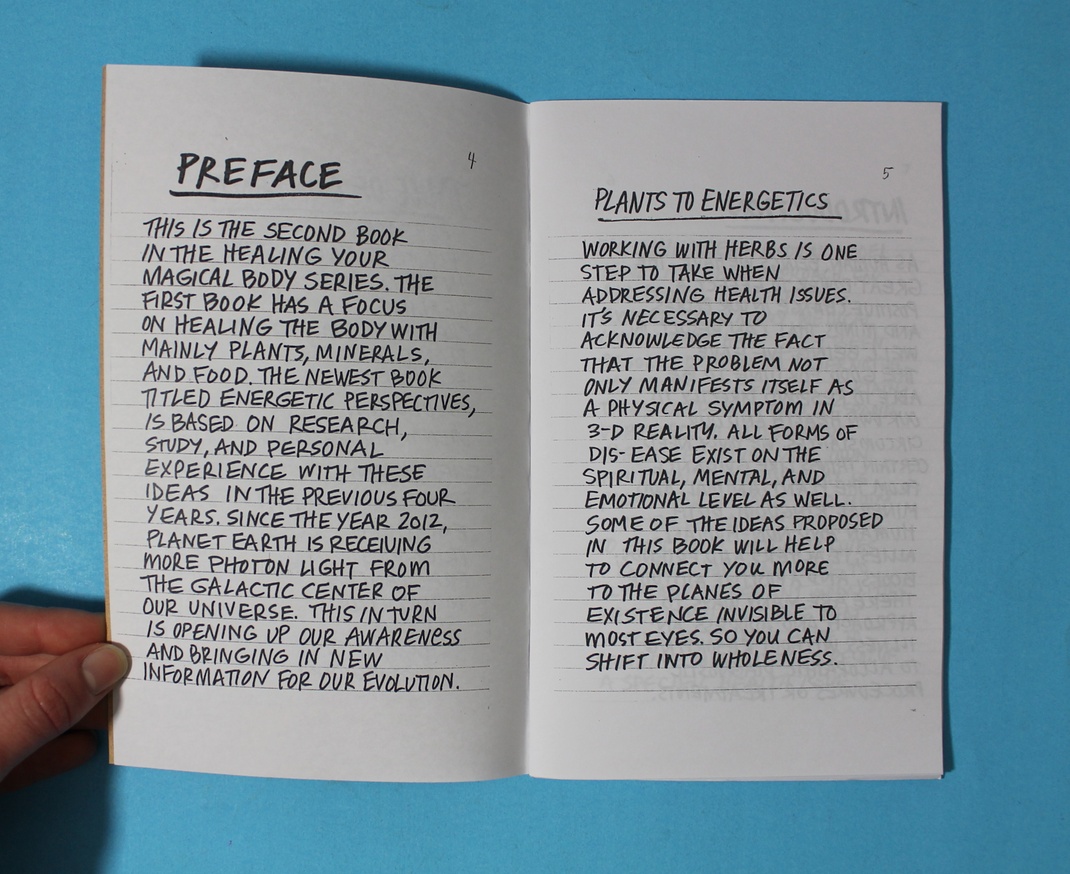 4
PREFACE
THIS IS THE SECOND BOOK
IN THE HEALING YOUR
MAGICAL BODY SERIES. THE
FIRST BOOK HAS A FOCUS
ON HEALING THE BODY WITH
MAINLY PLANTS, MINERALS,
AND FOOD. THE NEWEST BOOK
TITLED ENERGETIC PERSPECTIVES,
IS BASED ON RESEARCH,
STUDY, AND PERSONAL
EXPERIENCE WITH THESE
IDEAS IN THE PREVIOUS FOUR
YEARS. SINCE THE YEAR 2012,
PLANET EARTH IS RECEIVING
MORE PHOTON LIGHT FROM
THE GALACTIC CENTER OF
OUR UNIVERSE. THIS IN TURN
IS OPENING UP OUR AWARENESS
AND BRINGING IN NEW
INFORMATION FOR OUR EVOLUTION.
5
PLANTS TO ENERGETICS
WORKING WITH HERBS IS ONE
STEP TO TAKE WHEN
ADDRESSING HEALTH ISSUES.
IT'S NECESSARY TO
ACKNOWLEDGE THE FACT
THAT THE PROBLEM NOT
ONLY MANIFESTS ITSELF AS
A PHYSICAL SYMPTOM IN
3-D REALITY. ALL FORMS OF
DIS-EASE EXIST ON THE
SPIRITUAL, MENTAL, AND
EMOTIONAL LEVEL AS WELL.
SOME OF THE IDEAS PROPOSED
IN THIS BOOK WILL HELP
TO CONNECT YOU MORE
TO THE PLANES OF
EXISTENCE INVISIBLE TO
MOST EYES. SO YOU CAN
SHIFT INTO WHOLENESS.